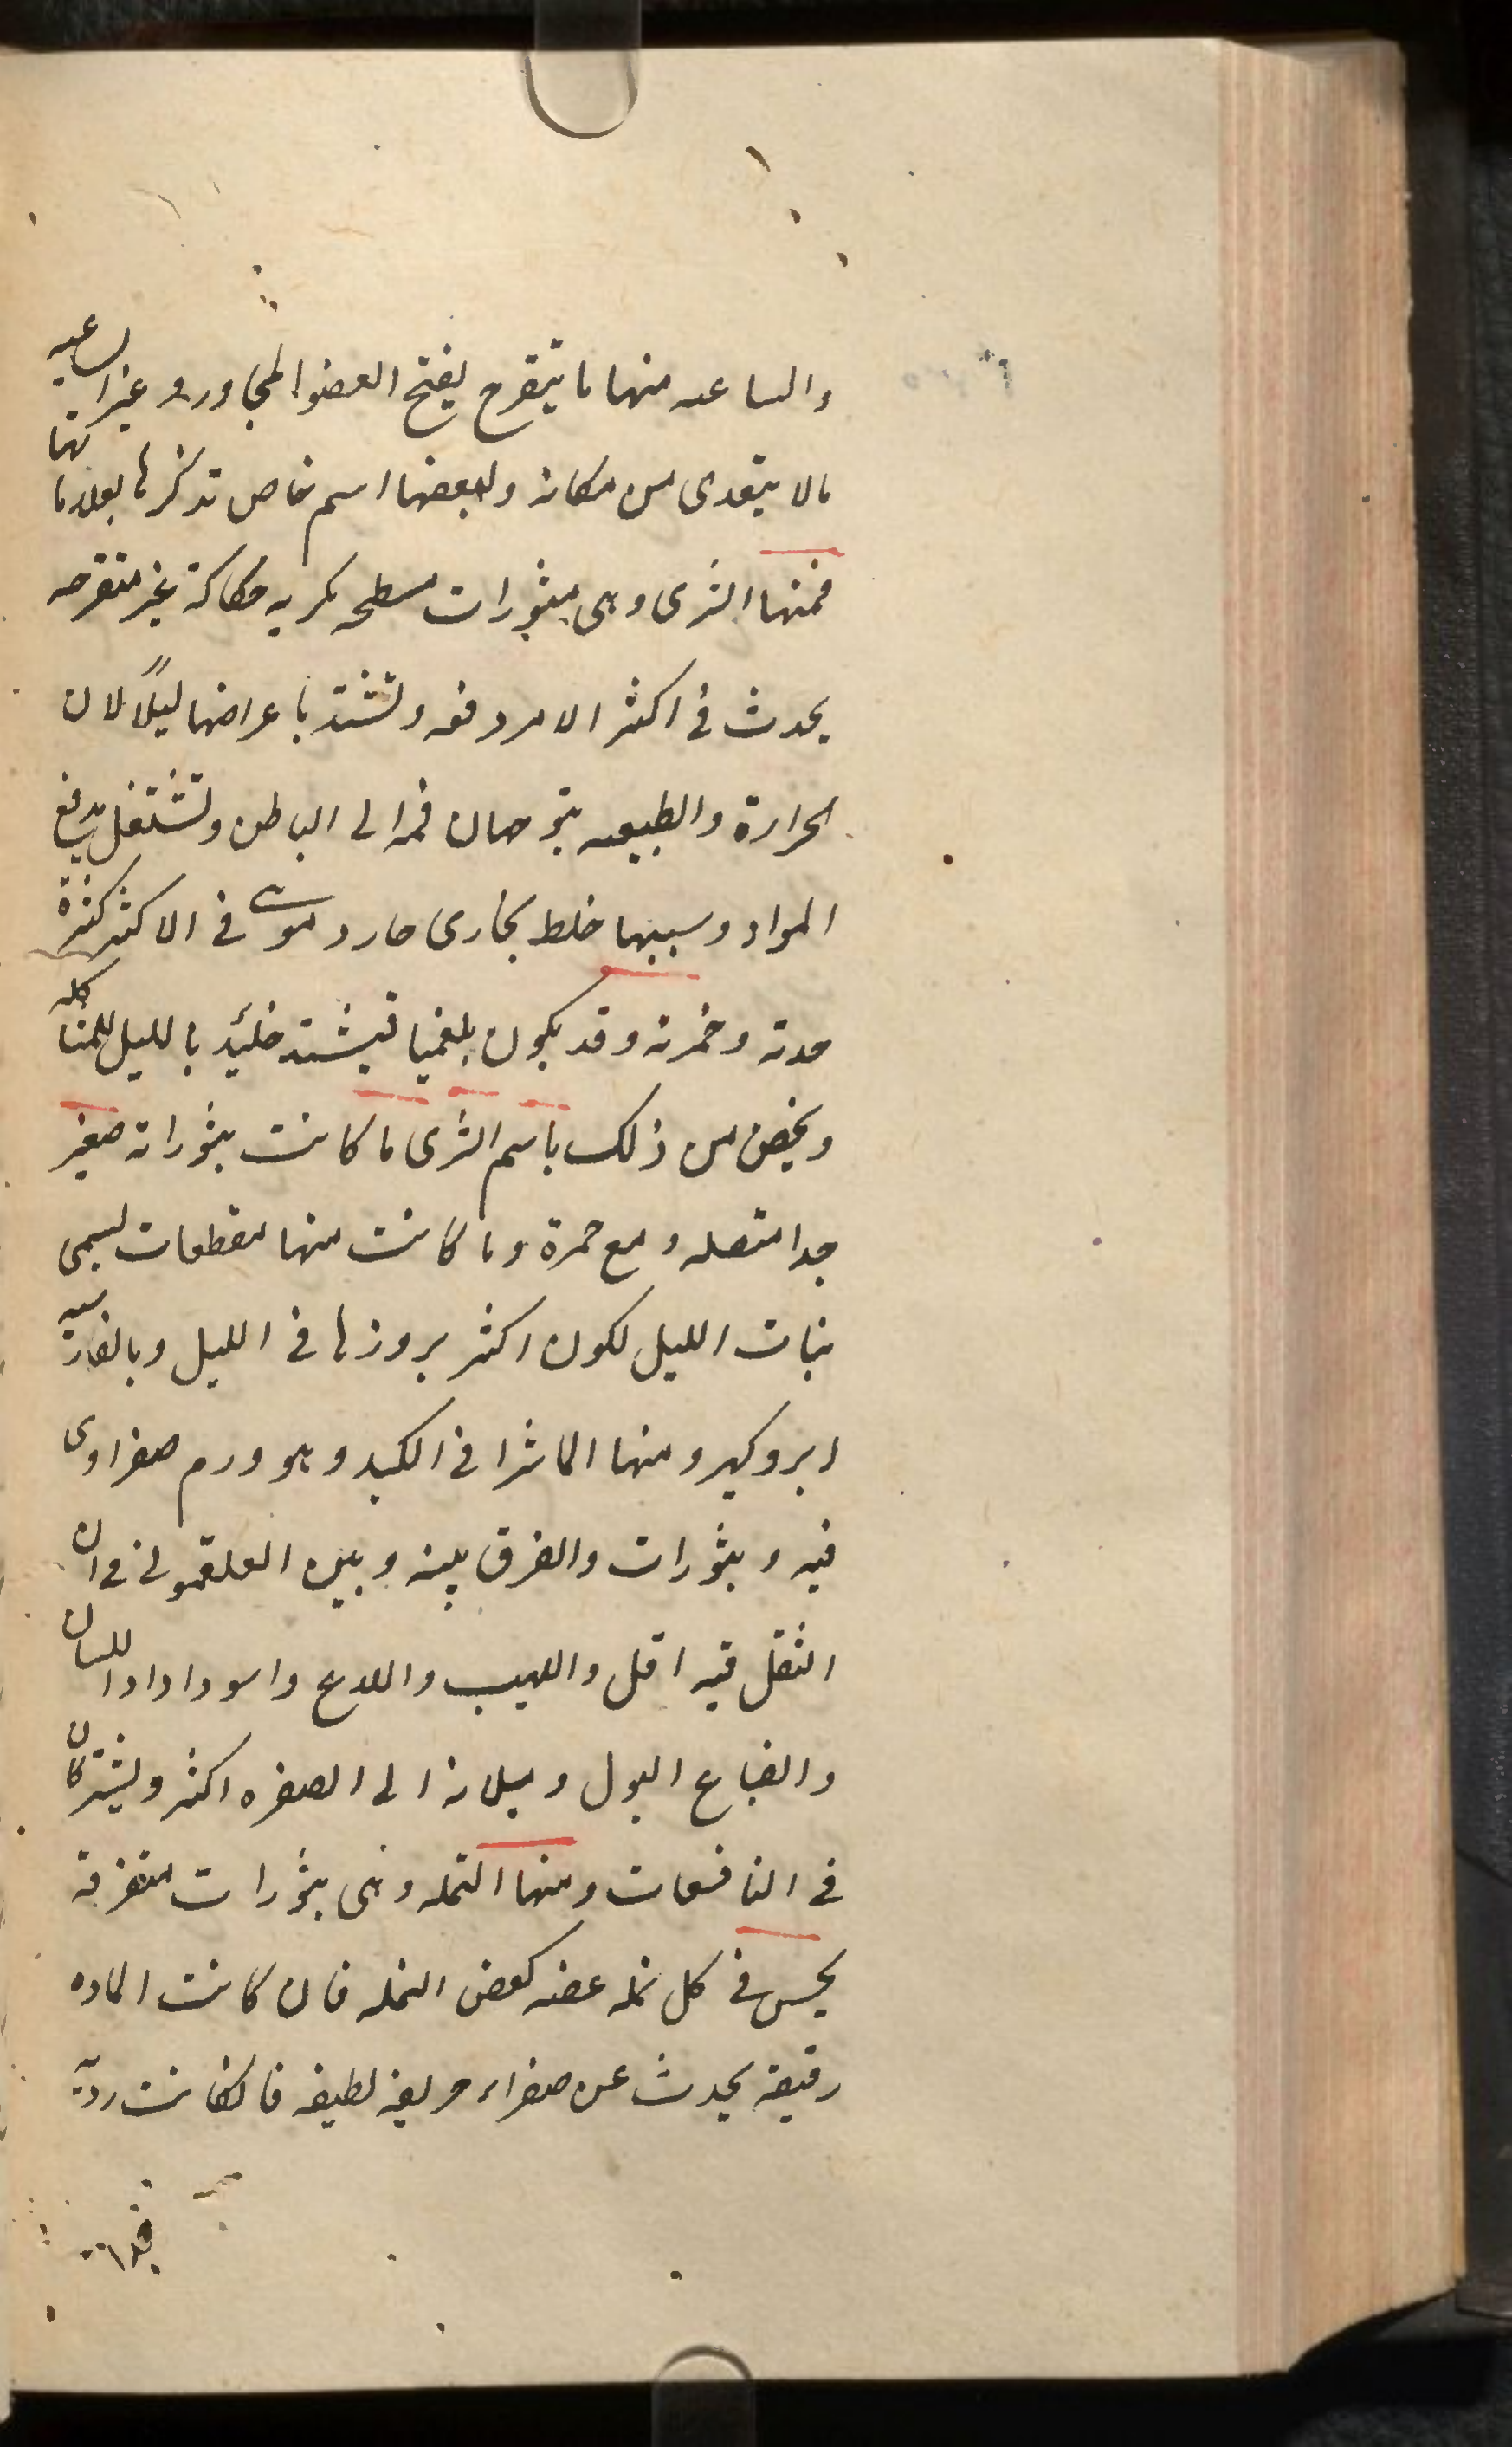 والساعيه منها ما يتقرح يفتح العضو المجاور وغير الساعيه
مالا يتعدى من مكانه ولبعضها اسم خاص تذكرها بعلاماتها
فمنها الشرى وهى بثورات مسطحه كربه حكاكة غير متقرحه
يحدث فى اكثر الامر دفعه وتشتد باعراضها ليلاً لان
الحرارة والطبيعه يتوجهان فيه الى الباطن وتشتغل بدفع
المواد وسببها خلط بخارى حار دموى فى الاكثر كثرة
حدته وخمرته وقد يكون بلغميا فيشتد حينئذ بالليل للمشاكله
ويخص من ذلك باسم الشرى ما كانت بثوراته صغير
جدا متصله ومع حمرة وما كانت منها مقطعات يسمى
بنات الليل لكون اكثر بروزها فى الليل وبالفارسيه
ابروكير ومنها الماشرا فى الكبد وهو ورم صفراوى
فيه وبثورات والفرق بينه وبين الفلغمونى فى ان
الثقل فيه اقل واللهيب واللدع واسوداد اللسان
والصباغ البول وميلانه الى الصفره اكثر ويشتركان
فى النافعات ومنها النمله وهى بثورات متفرقة
يحس فى كل نمله عضه كعض النمله فان كانت الماده
رقيقة يحدث عن صفراء حريفه لطيفه فان كانت رديه